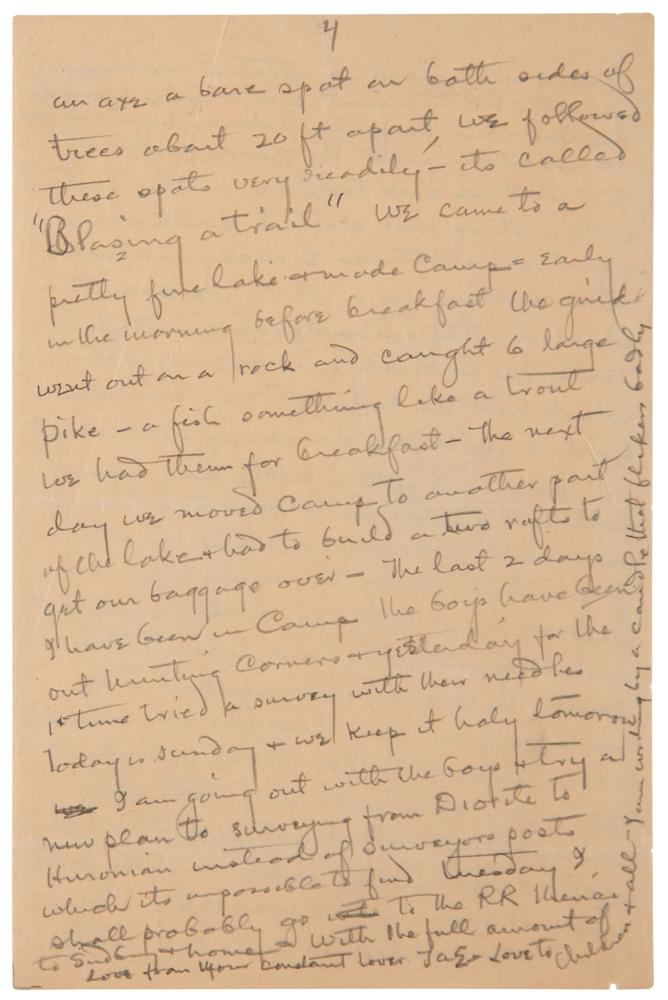 4
an axe a bare spot on both sides of
trees about 20 ft apart, we followed
these spots very readily - its called
"Blazing a trail" We came to a
pretty fine lake & made Camp = Early
in the morning before breakfast the guide
went out on a rock and caught 6 large
pike - a fish something like a trout
we had them for breakfast - The next
day we moved Camp to another part
of the lake & had to build a two rafts to
get our baggage over - The last 2 days
I have been in Camp the boys have been
out hunting Corners & yesterday for the
1st time tried a survey with their needles
Today is Sunday & we keep it holy tomorrow
I am going out with the boys & try a
new plan to surveying from Diorite to
Huronian instead of Surveyors posts
which its impossible to find Tuesday I
shall probably go to the RR thence
to Sudbury & home With the full amount of
Love from Your constant lover TAE - Love to
Children & all - I am working by a candle that flickers badly